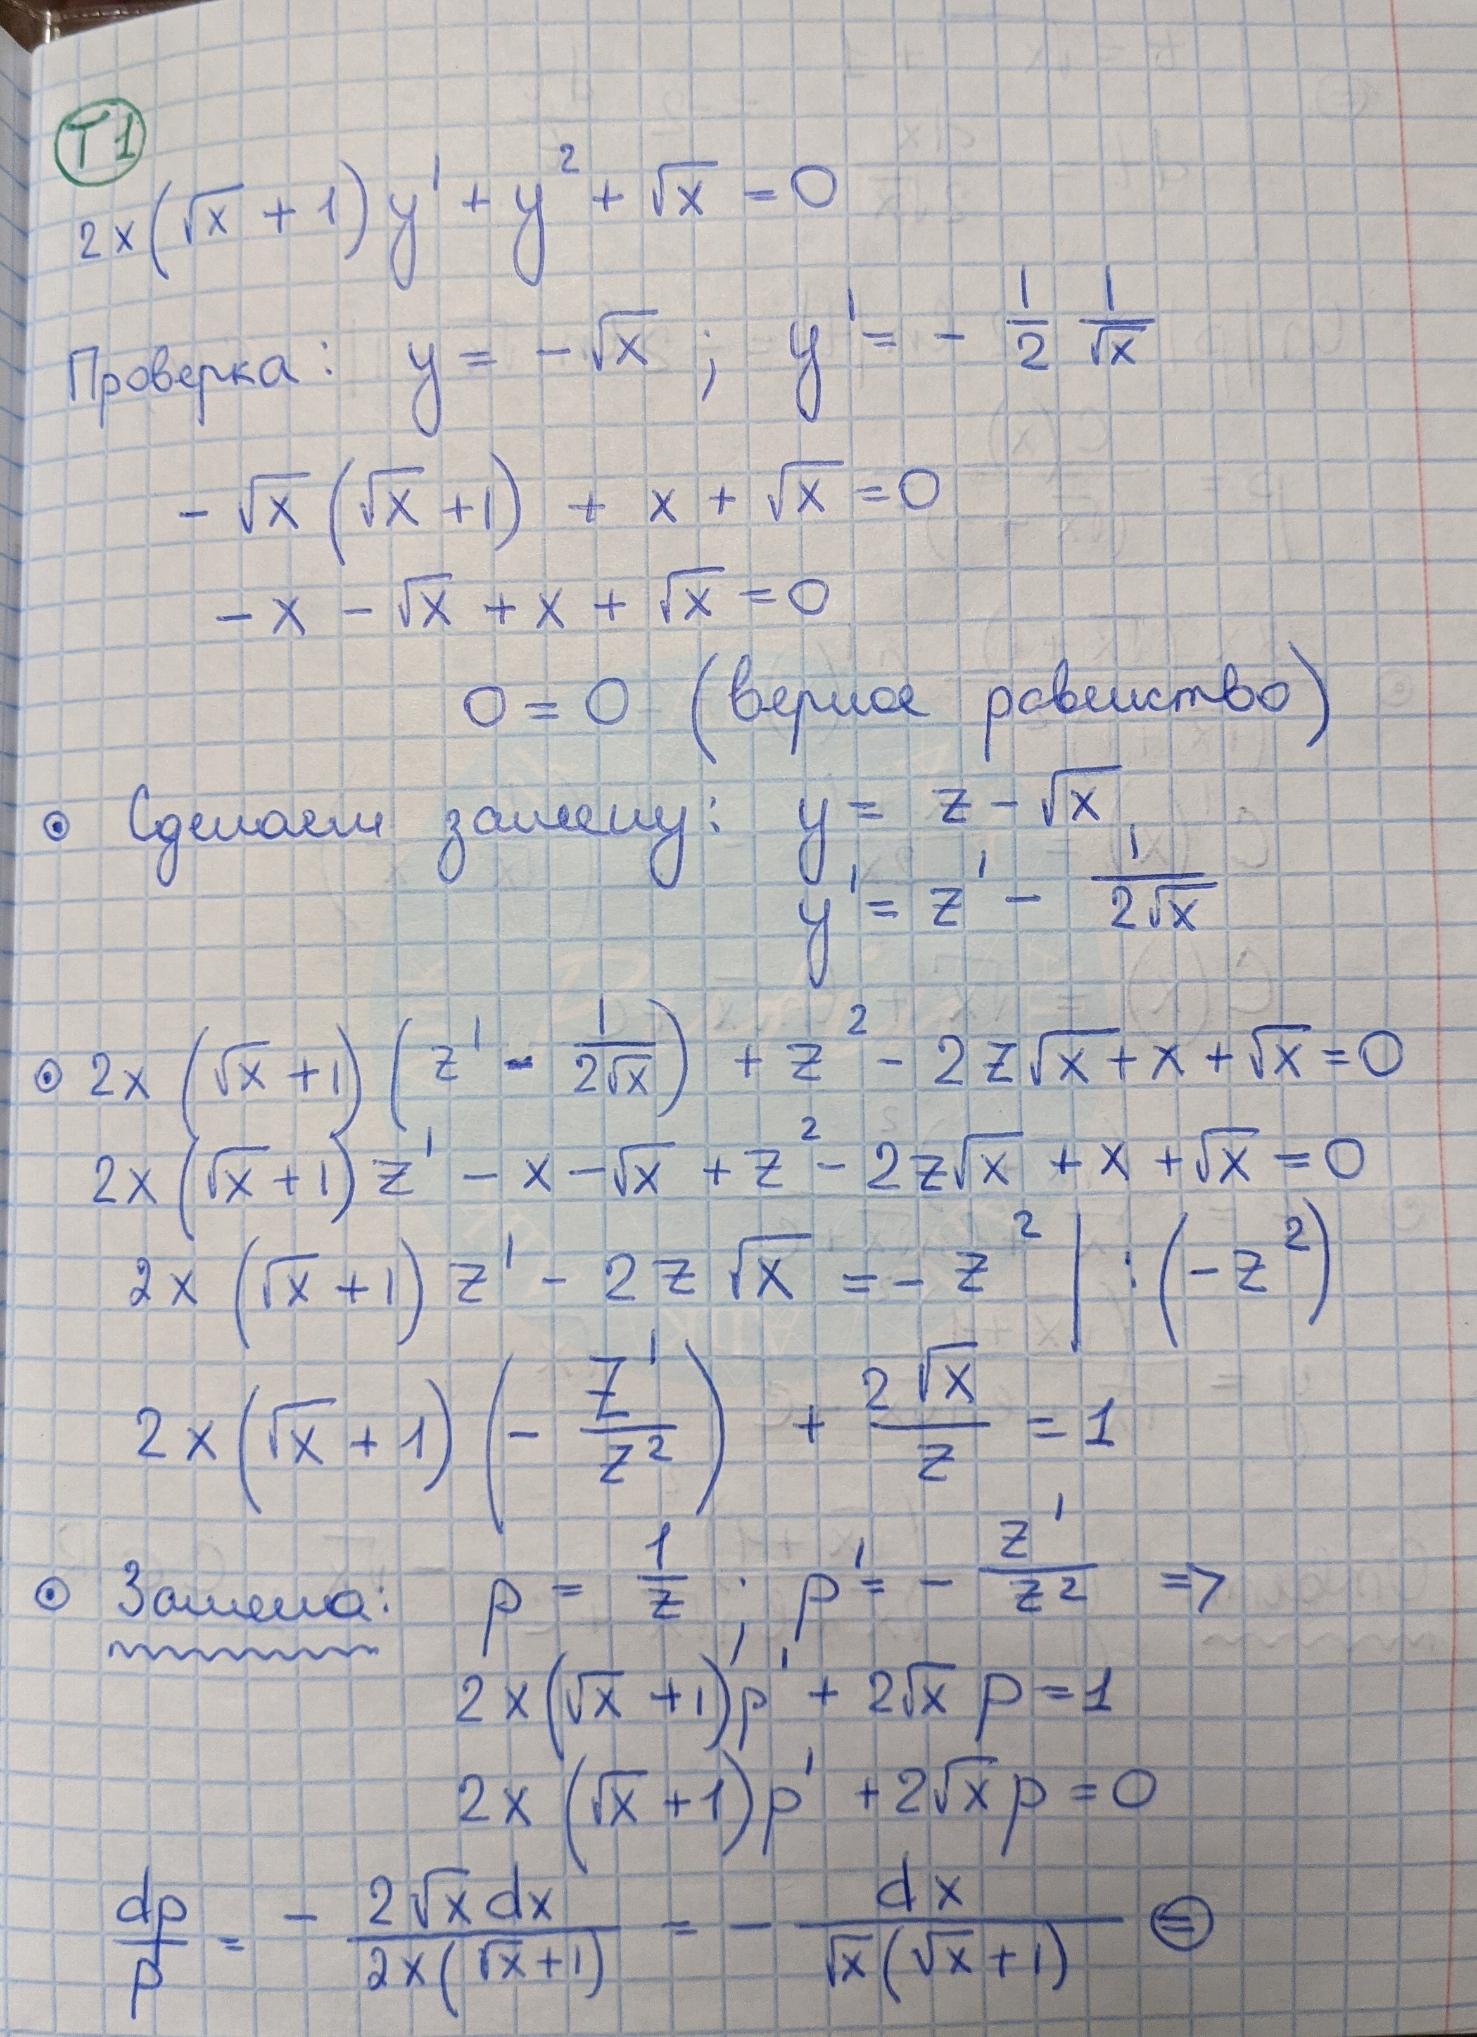 T1
2x(√x + 1)y' + y² + √x = 0
Проверка: y = -√x ; y' = - 1/2 1/√x
-√x(√x + 1) + x + √x = 0
-x - √x + x + √x = 0
0 = 0 (верное равенство)
⊙ Сделаем замену: y = z - √x,
y' = z' - 1/(2√x)
⊙ 2x(√x + 1)(z' - 1/(2√x)) + z² - 2z√x + x + √x = 0
2x(√x + 1)z' - x - √x + z² - 2z√x + x + √x = 0
2x(√x + 1)z' - 2z√x = -z² | : (-z²)
2x(√x + 1)(- z'/z²) + 2√x/z = 1
⊙ Замена: p = 1/z ; p' = - z'/z² =>
2x(√x + 1)p' + 2√x p = 1
2x(√x + 1)p' + 2√x p = 0
dp/p = - 2√x dx/(2x(√x + 1)) = - dx/(√x(√x + 1)) ⊜